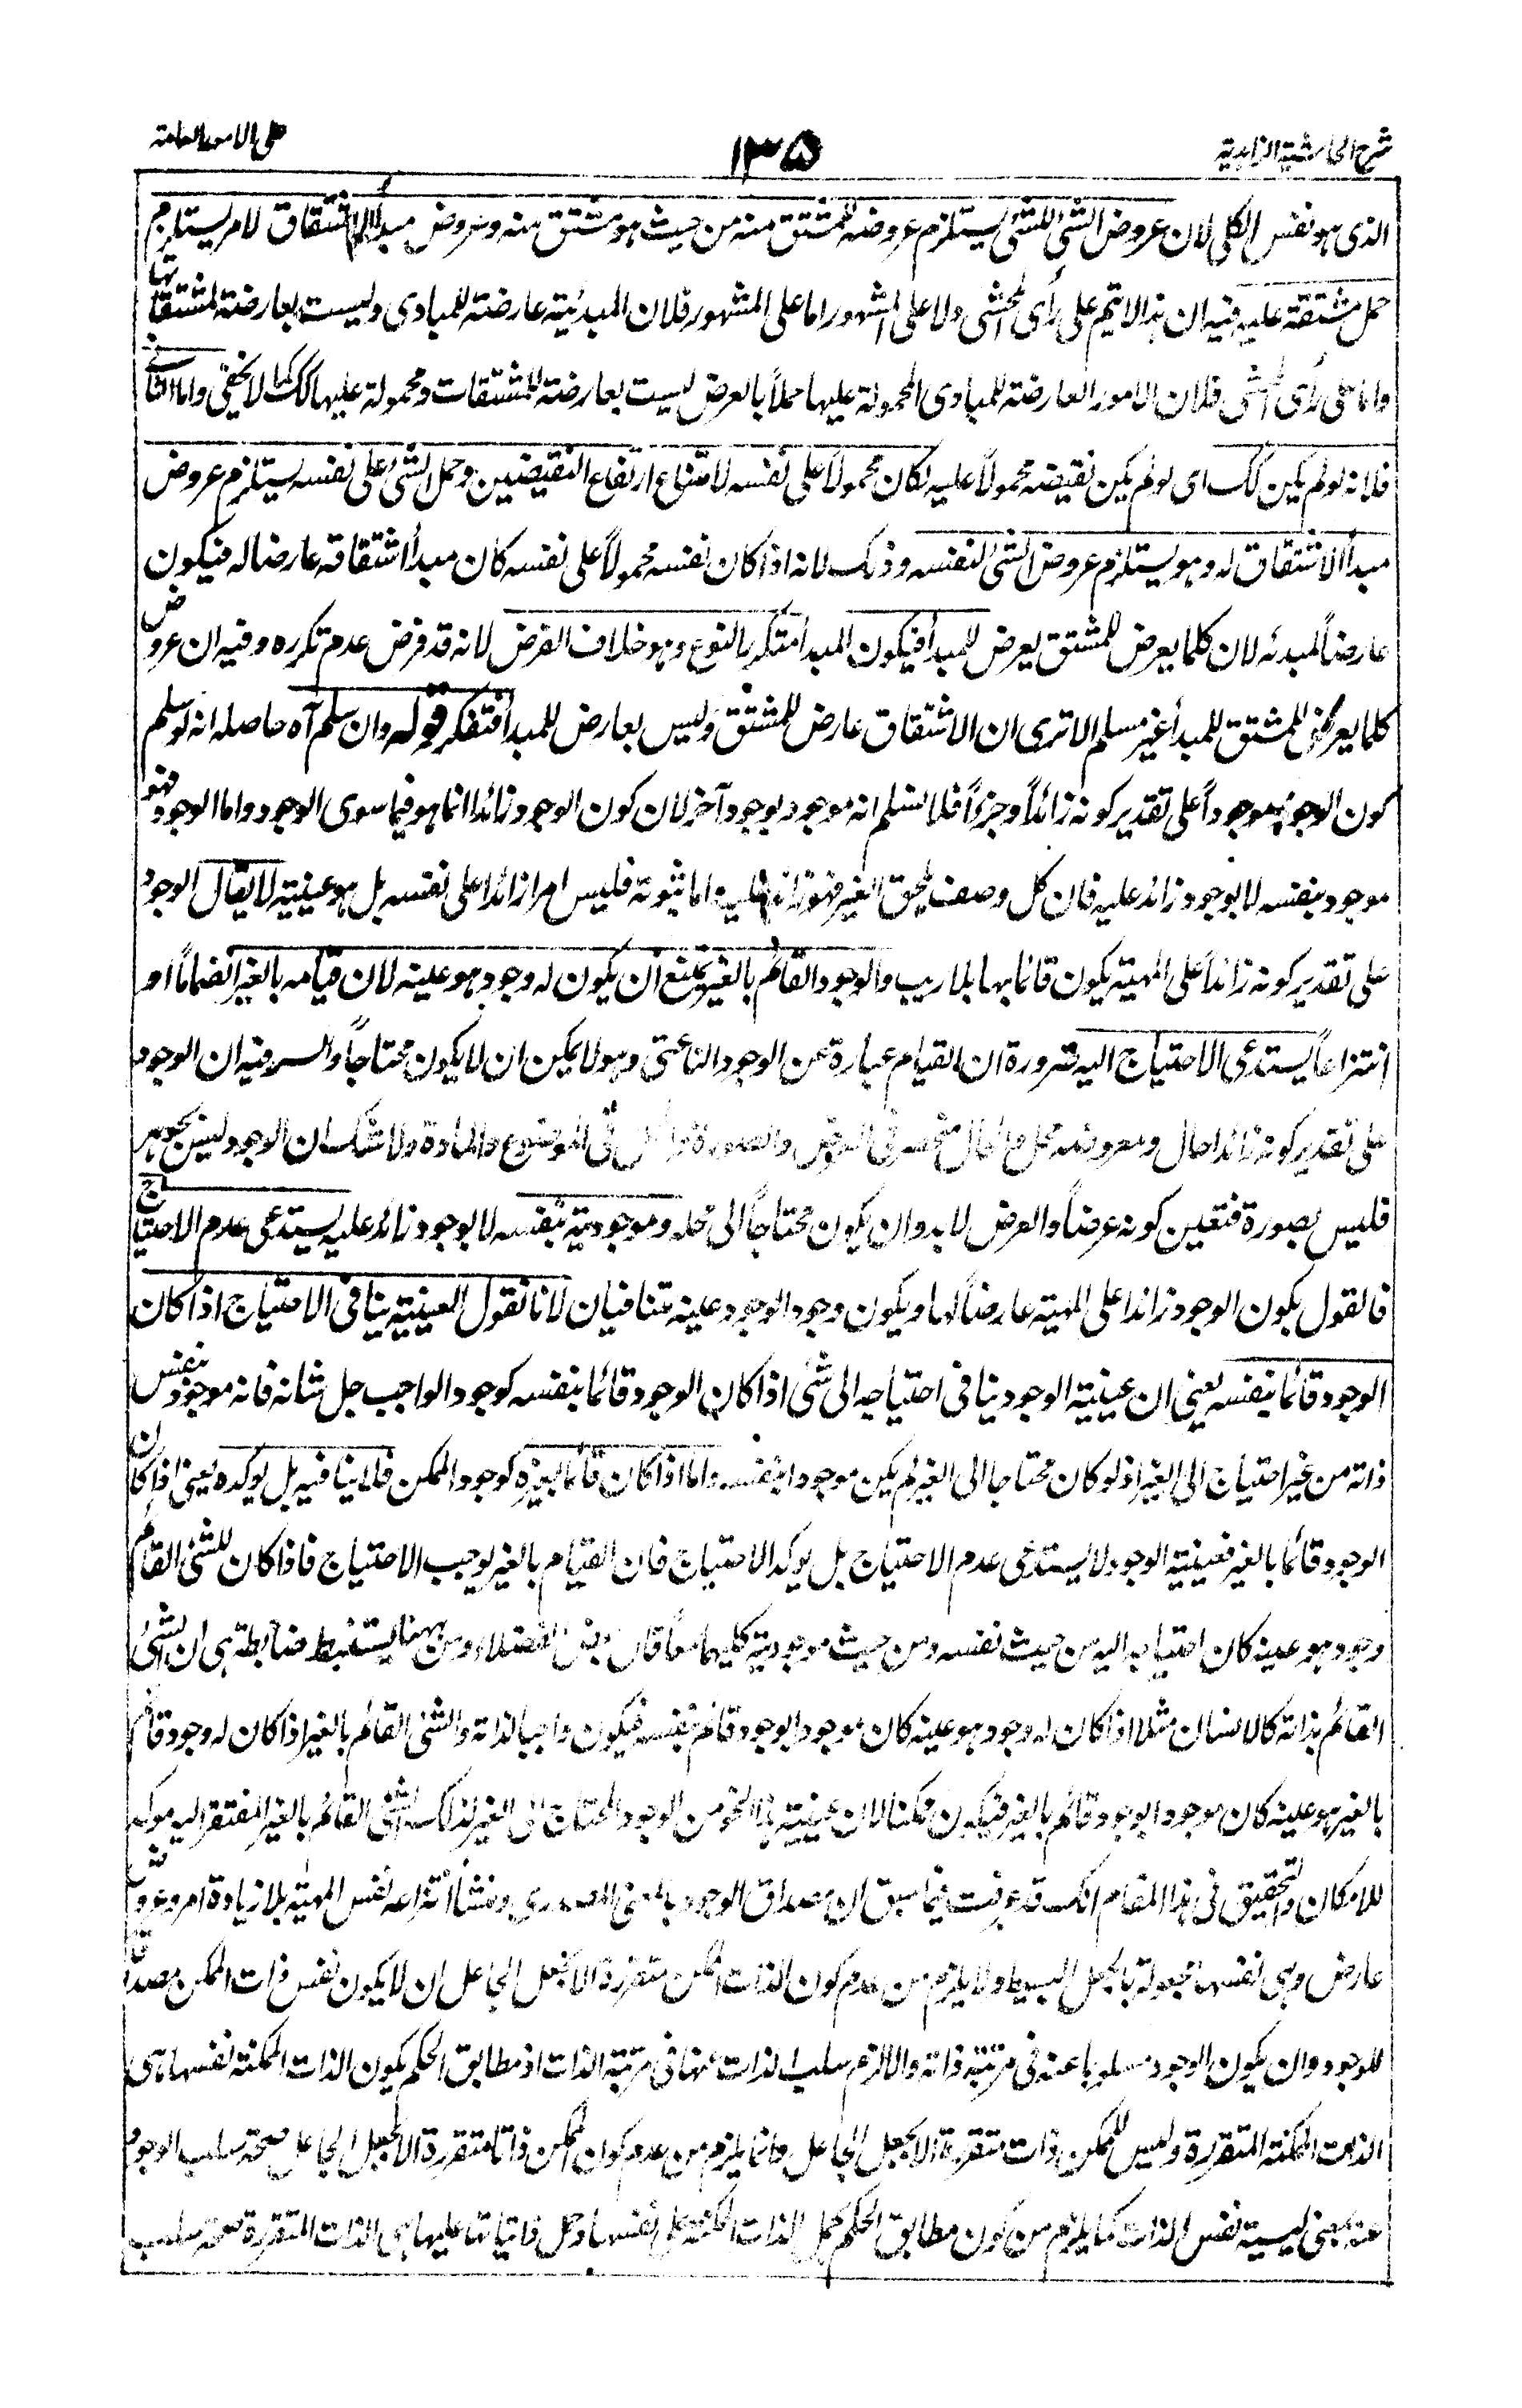 شرح الحاشية الزاهدية
١٣٥
على الامور العامة
الذى هو نفس الكلى لان عروض الشئ للشئ يستلزم عروضه للمشتق منه من حيث هو مشتق منه وعروض مبدأ الاشتقاق لامر يستلزم
حمل مشتقه عليه فيه ان هذا لا يتم على رأى المحشى ولا على المشهور اما على المشهور فلان المبدئية عارضة للمبادى وليست بعارضة لمشتقاتها
واما على رأى المحشى فلان الامور العارضة للمبادى المحمولة عليها حملاً بالعرض ليست بعارضة للمشتقات ومحمولة عليها كك كما لا يخفى واما الثانى
فلانه لو لم يكن كك اى لو لم يكن نقيضه محمولاً عليه لكان محمولاً على نفسه لامتناع ارتفاع النقيضين وحمل الشئ على نفسه يستلزم عروض
مبدأ الاشتقاق له وهو يستلزم عروض الشئ لنفسه وذلك لانه اذا كان نفسه محمولاً على نفسه كان مبدأ اشتقاقه عارضا له فيكون
عارضاً لمبدئه لان كلما يعرض للمشتق يعرض للمبدأ فيكون المبدأ متكرر بالنوع وهو خلاف الفرض لانه قد فرض عدم تكرره وفيه ان عروض
كلما يعرض للمشتق للمبدأ غير مسلم الا ترى ان الاشتقاق عارض للمشتق وليس بعارض للمبدأ فتفكر قوله وان سلم آه حاصله انه لو سلم
كون الوجود موجوداً على تقدير كونه زائداً وجزءاً فلا نسلم انه موجود بوجود آخر لان كون الوجود زائدا انما هو فيما سوى الوجود واما الوجود فهو
موجود بنفسه لا بوجود زائد عليه فان كل وصف يلحق الغير فهو زائد عليه اما ثبوته فليس امرا زائدا على نفسه بل هو عينيته لا يقال الوجود
على تقدير كونه زائداً على المهية يكون قائما بها بلا ريب والوجود القائم بالغير يمتنع ان يكون له وجود هو عينه لان قيامه بالغير انضماماً او
انتزاعاً يستدعى الاحتياج اليه ضرورة ان القيام عبارة عن الوجود الناعتى وهو لا يمكن ان لا يكون محتاجاً والسر فيه ان الوجود
على تقدير كونه زائدا حال ومعروضه محل والحال منحصر فى العرض والصورة والمحل فى الموضوع والمادة ولا شك ان الوجود ليس بجوهر
فليس بصورة فتعين كونه عرضاً والعرض لا بد وان يكون محتاجاً الى محله وموجوديته بنفسه لا بوجود زائد عليه يستدعى عدم الاحتياج
فالقول بكون الوجود زائدا على المهية عارضاً لها ويكون وجود الوجود عينه متنافيان لانا نقول العينية ينافى الاحتياج اذا كان
الوجود قائما بنفسه يعنى ان عينية الوجود ينافى احتياجه الى شئ اذا كان الوجود قائما بنفسه كوجود الواجب جل شانه فانه موجود بنفس
ذاته من غير احتياج الى الغير اذ لو كان محتاجا الى الغير لم يكن موجودا بنفسه واما اذا كان قائما بغيره كوجود الممكن فلا ينافيه بل يوكده يعنى اذا كان
الوجود قائما بالغير فعينية الوجود لا يستدعى عدم الاحتياج بل يوكد الاحتياج فان القيام بالغير يوجب الاحتياج فاذا كان للشئ القائم
وجود هو عينه كان احتياجه اليه من حيث نفسه ومن حيث موجوديته كليهما معاً قال بعض الفضلاء ومن ههنا يستنبط ضابطة هى ان الشئ
القائم بذاته كالانسان مثلا اذا كان له وجود هو عينه كان موجودا بوجود قائم بنفسه فيكون واجبا لذاته والشئ القائم بالغير اذا كان له وجود قائم
بالغير هو عينه كان موجودا بوجود قائم بالغير فيكون ممكنا لان عينية هذا النحو من الوجود المحتاج الى الغير لذلك الشئ القائم بالغير المفتقر اليه موكد
للامكان والتحقيق فى هذا المقام انك قد عرفت فيما سبق ان مصداق الوجود بالمعنى المصدرى ومنشأ انتزاعه نفس المهية بلا زيادة امر وعروض
عارض وهى نفسها مجعولة بالجعل البسيط ولا يلزم من عدم كون الذات الممكن متقررة الا بجعل الجاعل ان لا يكون نفس ذات الممكن مصداقاً
للوجود وان يكون الوجود مسلوبا عنه فى مرتبة ذاته والا لزم سلب الذات عنها فى مرتبة الذات اذ مطابق الحكم بكون الذات الممكنة نفسها هى
الذات الممكنة المتقررة وليس للممكن ذات متقررة الا بجعل الجاعل وانما يلزم من عدم كون الممكن ذاتا متقررة الا بجعل الجاعل صحة سلب الوجود
عنه بمعنى ليسية نفس الذات كما يلزم من كون مطابق الحكم بحمل الذات الممكنة على نفسها وحمل ذاتياتها عليها هى الذات المتقررة صحة سلب